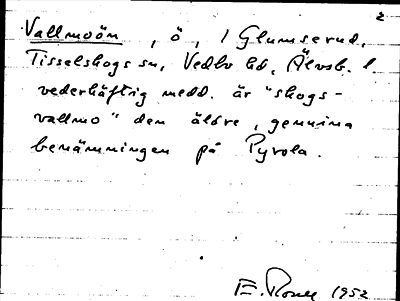 2
Vallmoön, ö, i Glumserud,
Tisselskogs sn, Vedbo hd, Älvsb. l.
vederhäftig medd. är "skogs-
vallmo" den äldre, genuina
benämningen på Pyrola.
E. 1952